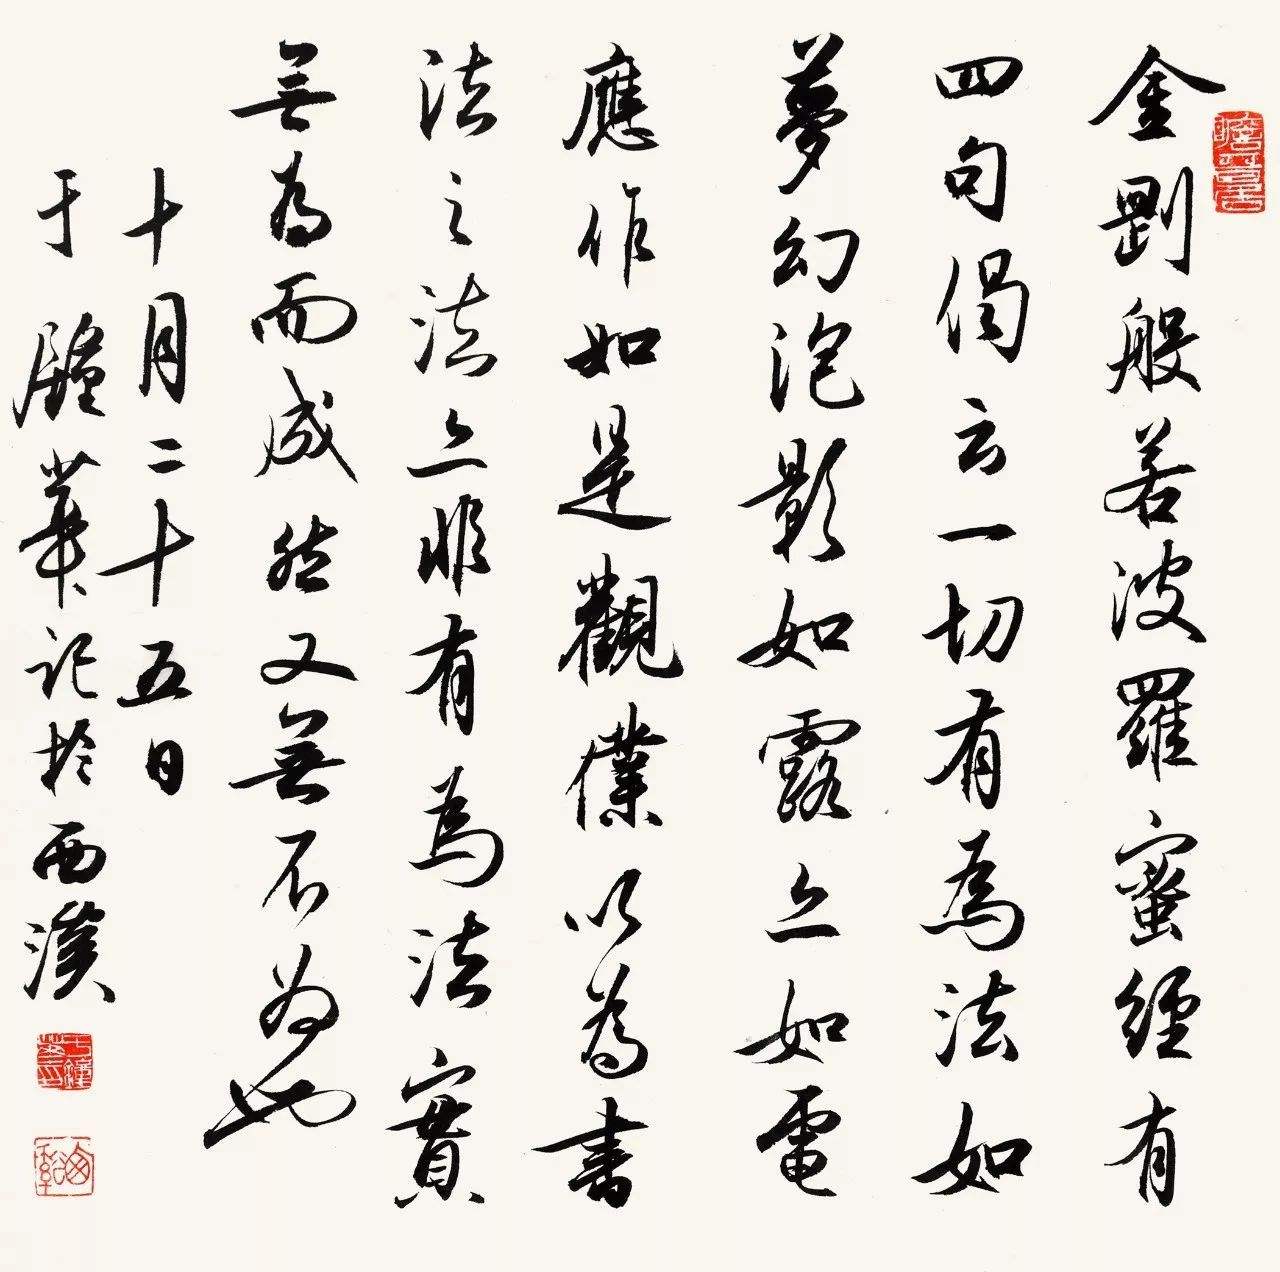 金剛般若波羅蜜經有
四句偈云一切有為法如
夢幻泡影如露亦如電
應作如是觀僕以為書
法之法亦非有為法實
無為而成然又無不為也
十月二十五日
于鐘華記於西溪